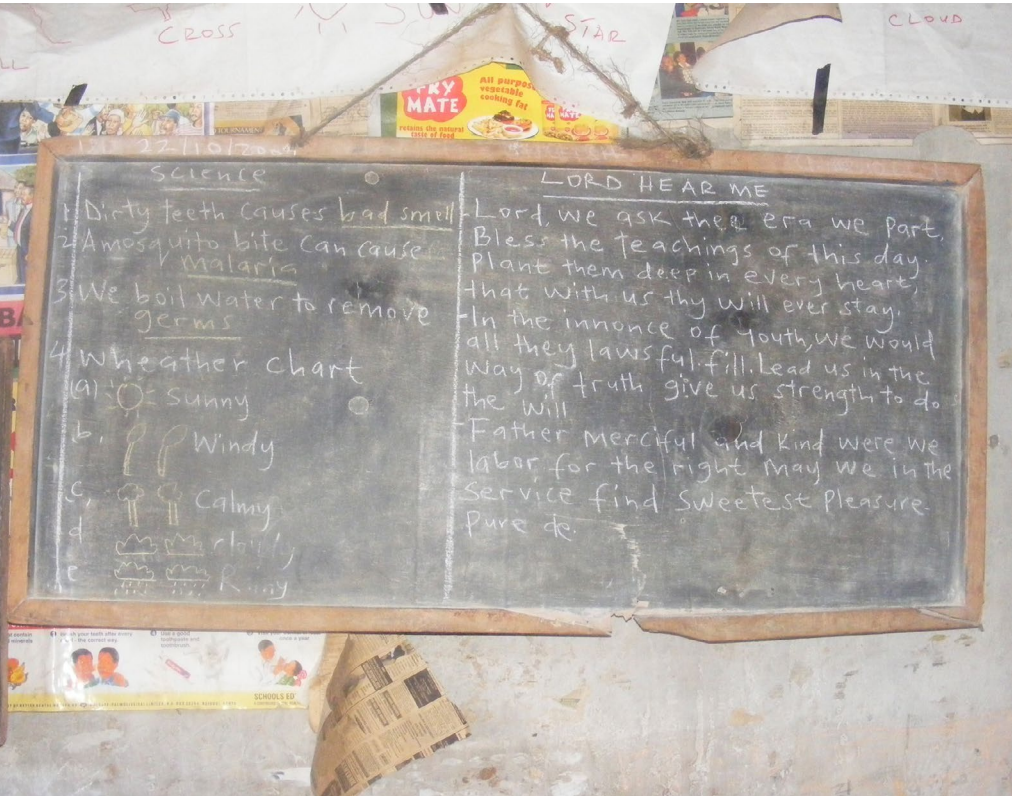 CROSS
SUN
STAR
CLOUD
LL
FRY
MATE
All purpose
vegetable
cooking fat
retains the natural
taste of food
TOURNAMENT
22/10/2009
Science
1. Dirty teeth causes bad smell
2. A mosquito bite can cause
malaria
3. We boil water to remove
germs
4. Wheather chart
(a) Sunny
b, Windy
c, Calmy
d cloudy
e Rainy
LORD HEAR ME
-Lord, we ask thee era we part,
Bless the teachings of this day.
Plant them deep in every heart,
that with us thy will ever stay.
-In the innonce of youth, we would
all they laws ful-fill. Lead us in the
way of truth give us strength to do
the will
-Father merciful and kind were we
labor for the right may we in the
service find sweetest pleasure.
Pure de.
BA
your teeth after every
- the correct way.
Use a good
toothpaste and
toothbrush
SCHOOLS ED